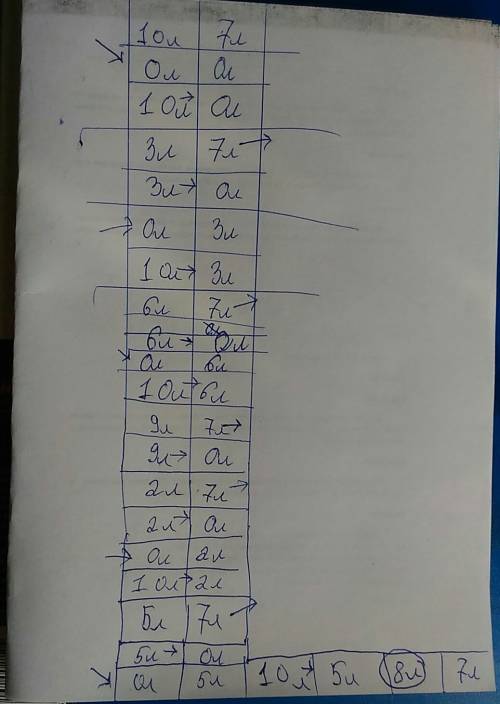 10л 7л
0л 0л
10л→ 0л
3л 7л→
3л→ 0л
0л 3л
10л→ 3л
6л 7л→
6л→ 0л
0л 6л
10л→ 6л
9л 7л→
9л→ 0л
2л 7л→
2л→ 0л
0л 2л
10л→ 2л
5л 7л→
5л→ 0л
0л 5л 10л→ 5л 8л 7л